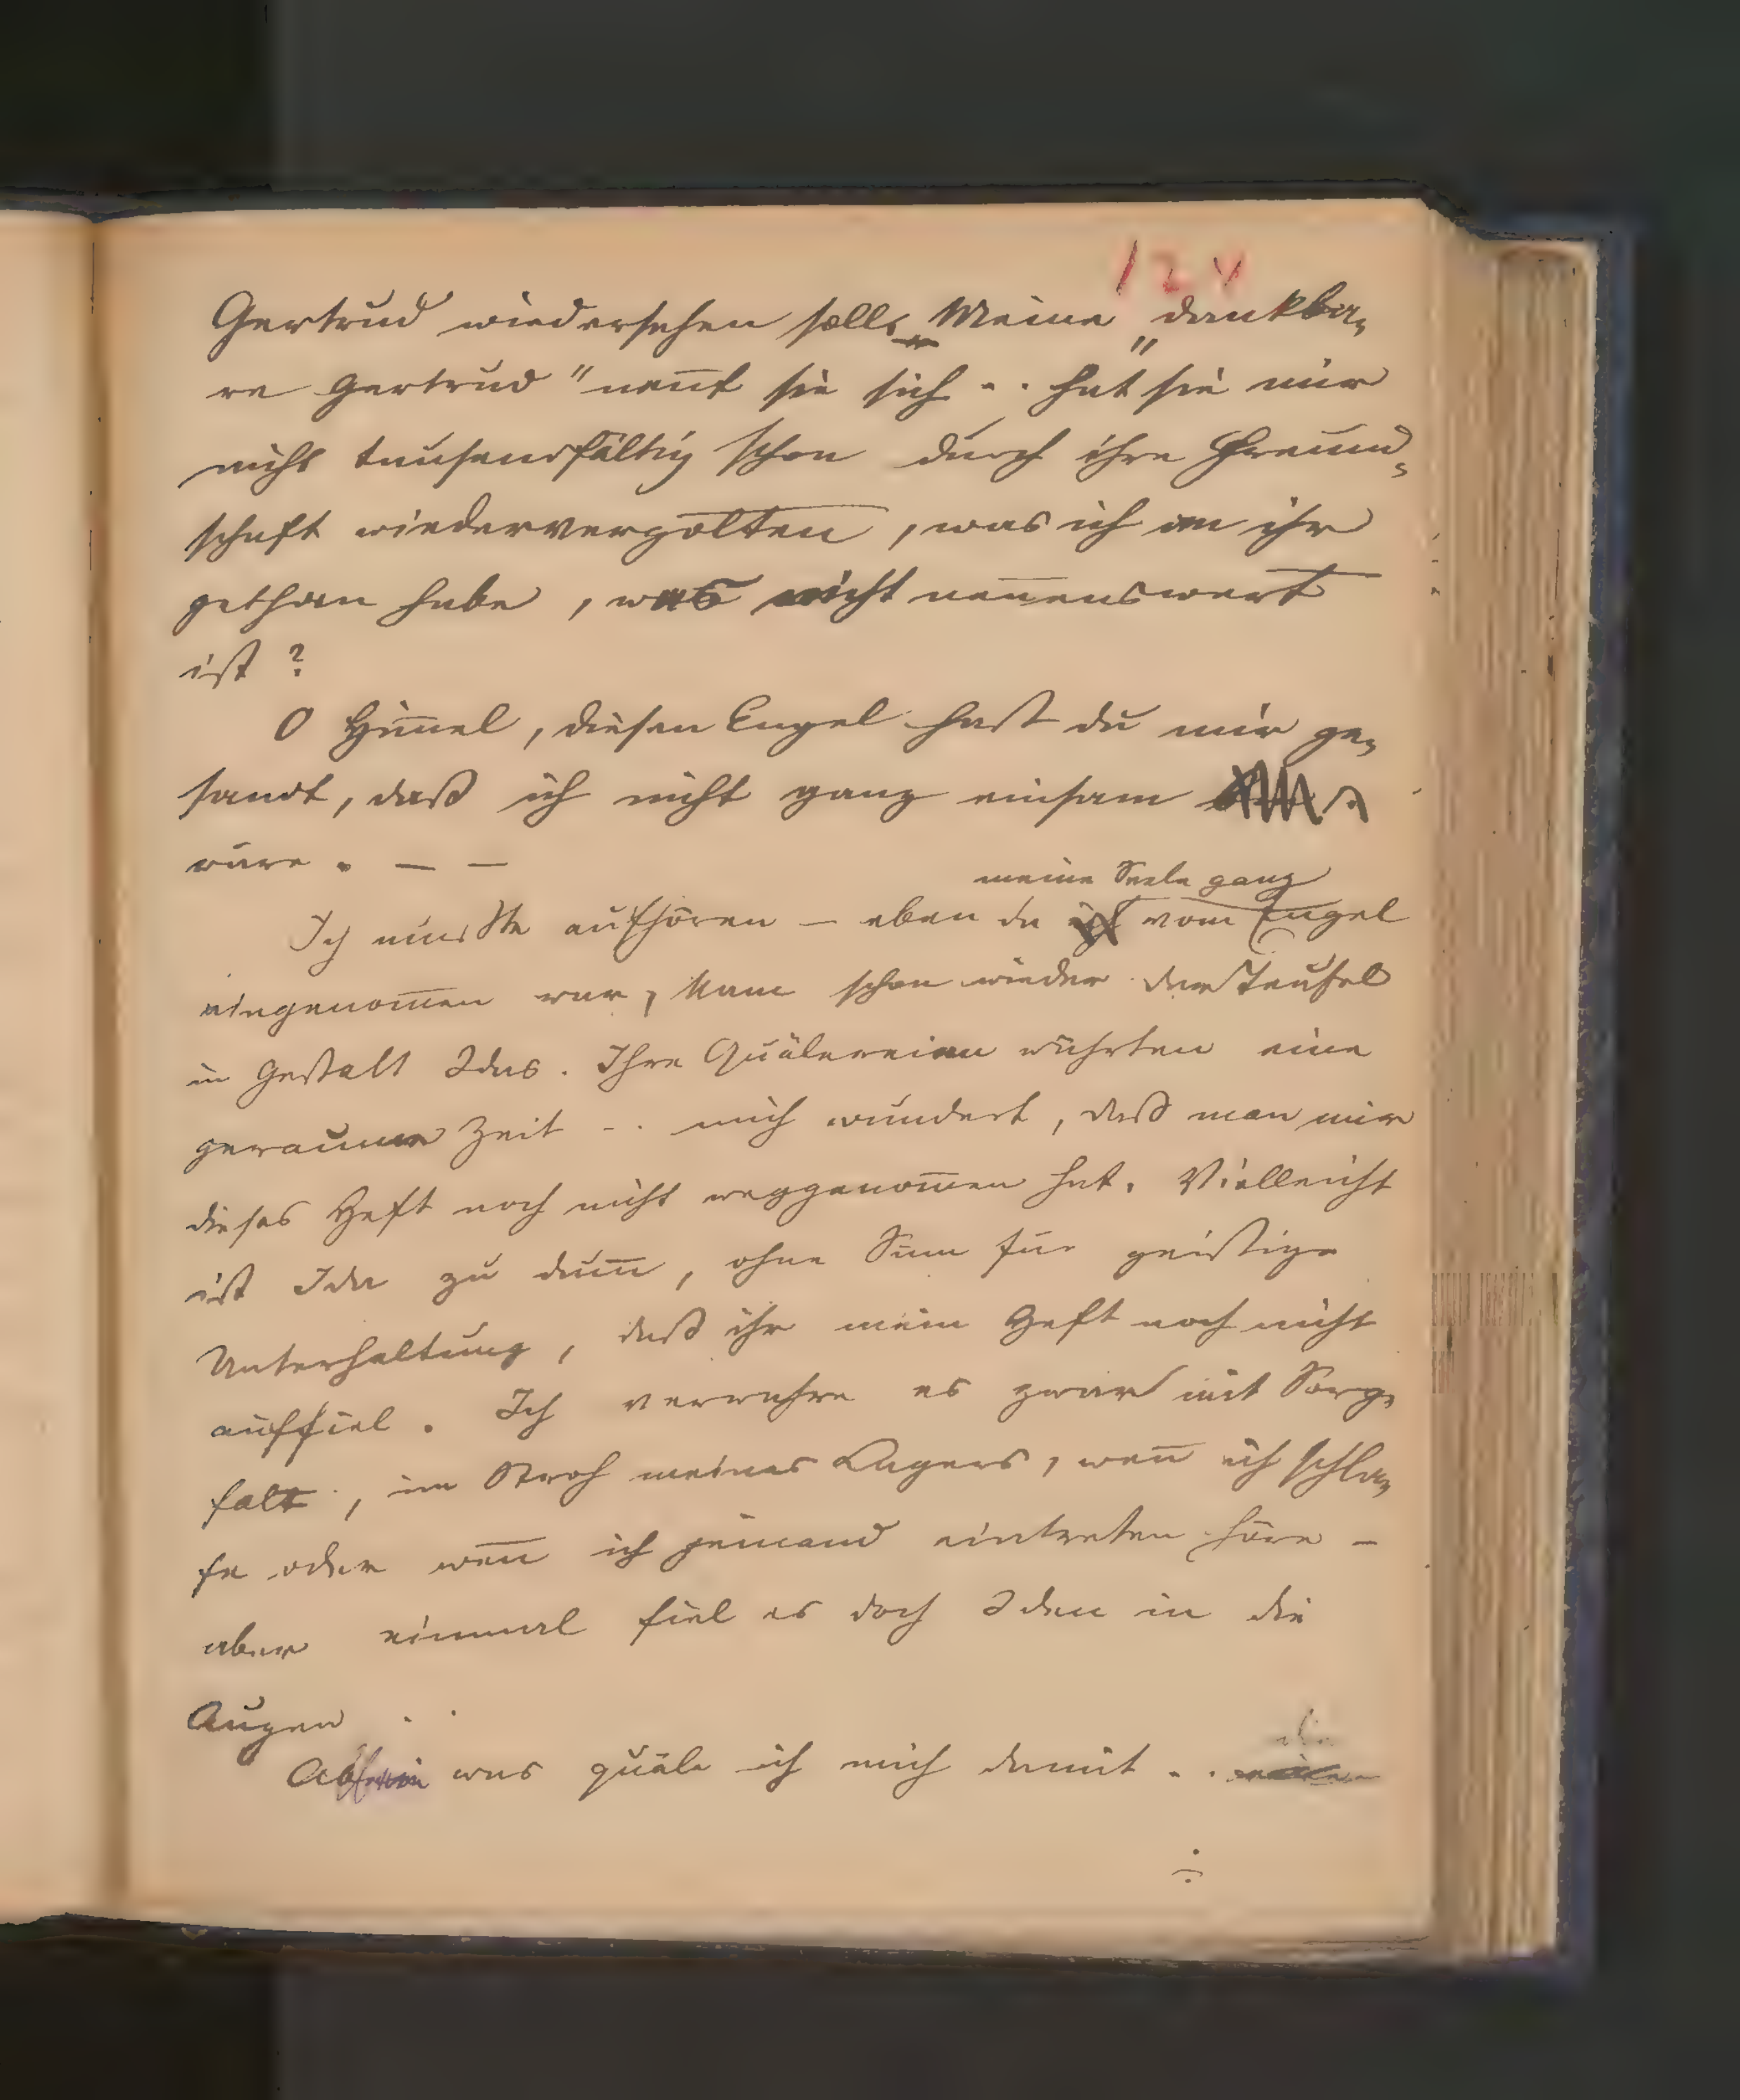 124
Gertrud wiedersehen soll. Meine „dankba-
re Gertrud" nen̄t sie sich .. hat sie mir
nicht tausendfältig schon durch ihre Freund-
schaft wiedervergolten, was ich an ihr
gethan habe, was nicht nen̄enswert
ist?
O Him̄el, diesen Engel hast du mir ge-
sandt, daß ich nicht ganz einsam
wäre. — —
meine Seele ganz
Ich mußte aufhören – eben da vom Engel
eingenom̄en war, kam schon wieder der Teufel
in Gestalt Idas. Ihre Quälereien währten eine
geraume Zeit .. mich wundert, daß man mir
dieses Heft noch nicht weggenom̄en hat. Vielleicht
ist Ida zu dum̄, ohne Sinn für geistige
Unterhaltung, daß ihr mein Heft noch nicht
auffiel. Ich verwahre es zwar mit Sorg-
falt, im Stroh meines Lagers, wen̄ ich schla-
fe oder wen̄ ich jemand eintreten höre –
aber einmal fiel es doch Iden in die
Augen ..
was quäle ich mich damit ..